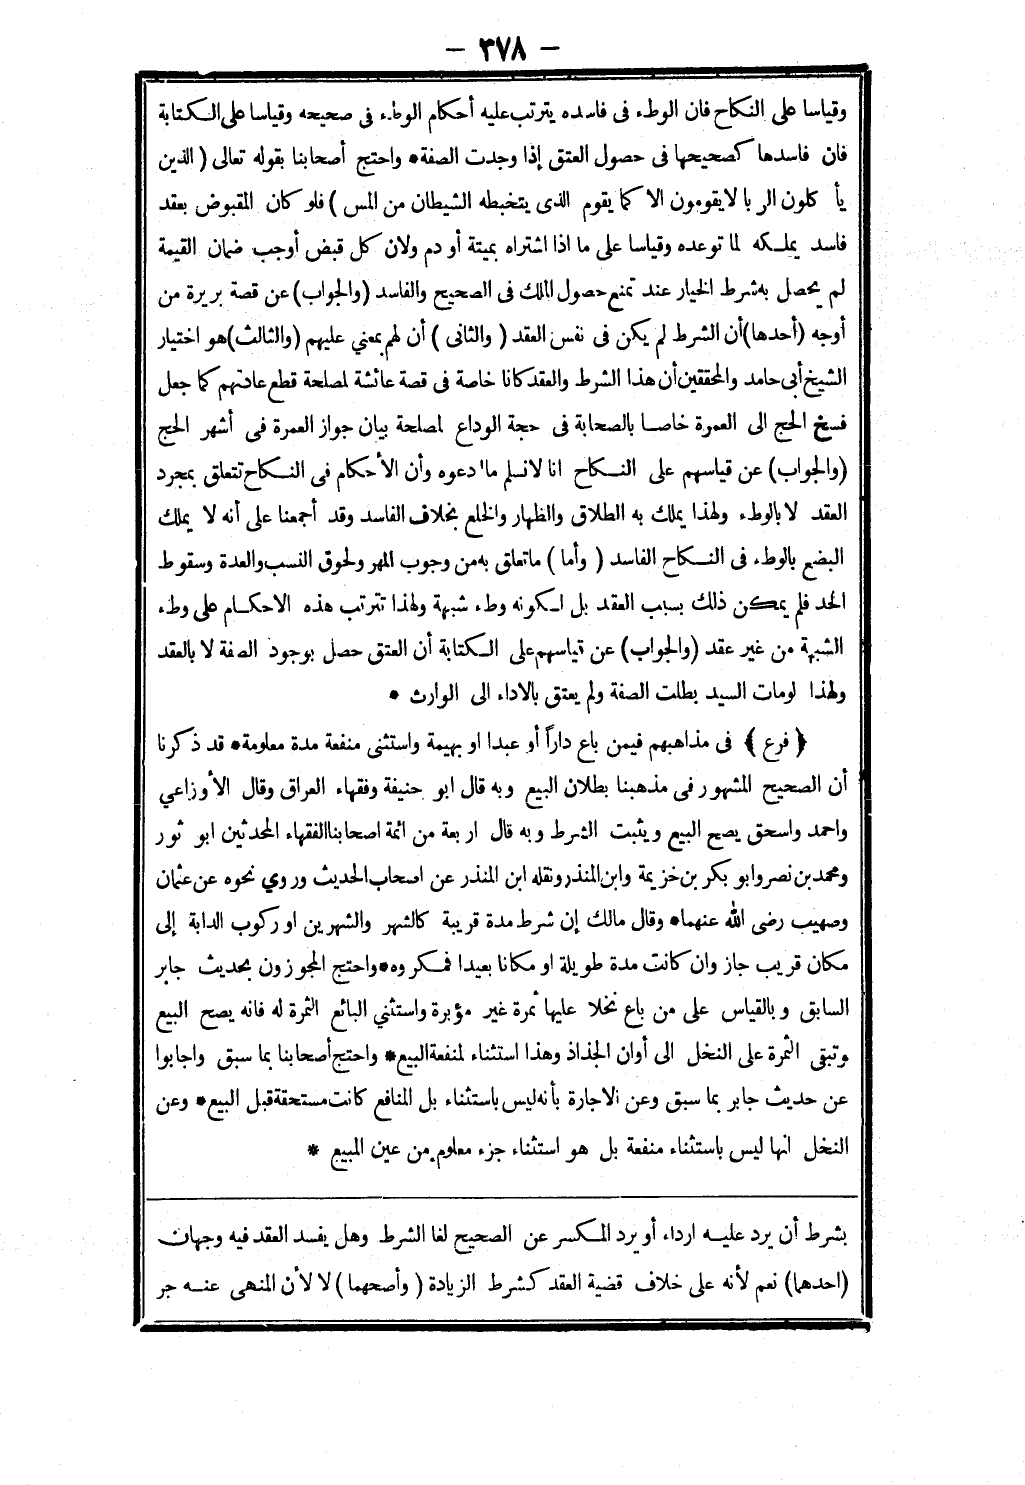 — ٣٧٨ —
وقياسا على النكاح فان الوطء فى فاسده يترتب عليه أحكام الوطء فى صحيحه وقياسا على الكتابة
فان فاسدها كصحيحها فى حصول العتق إذا وجدت الصفة * واحتج أصحابنا بقوله تعالى ( الذين
يأ كلون الر با لا يقومون الا كما يقوم الذى يتخبطه الشيطان من المس ) فلو كان المقبوض بعقد
فاسد يملكه لما توعده وقياسا على ما اذا اشتراه بميتة أو دم ولان كل قبض أوجب ضمان القيمة
لم يحصل به شرط الخيار عند تمنع حصول الملك فى الصحيح والفاسد (والجواب) عن قصة بريرة من
أوجه (أحدها) أن الشرط لم يكن فى نفس العقد ( والثانى ) أن لهم بمعني عليهم (والثالث) هو اختيار
الشيخ أبى حامد والمحققين أن هذا الشرط والعقد كانا خاصة فى قصة عائشة لمصلحة قطع عادتهم كما جعل
فسخ الحج الى العمرة خاصا بالصحابة فى حجة الوداع لمصلحة بيان جواز العمرة فى أشهر الحج
(والجواب) عن قياسهم على النكاح انا لانسلم ما ادعوه وأن الأحكام فى النكاح تتعلق بمجرد
العقد لا بالوطء ولهذا يملك به الطلاق والظهار والخلع بخلاف الفاسد وقد أجمعنا على أنه لا يملك
البضع بالوطء فى النكاح الفاسد ( وأما ) ما تعلق به من وجوب المهر ولحوق النسب والعدة وسقوط
الحد فلم يمكن ذلك بسبب العقد بل لكونه وطء شبهة ولهذا تترتب هذه الاحكام على وطء
الشبهة من غير عقد (والجواب) عن قياسهم على الكتابة أن العتق حصل بوجود الصفة لا بالعقد
ولهذا لومات السيد بطلت الصفة ولم يعتق بالاداء الى الوارث *
﴿ فرع ﴾ فى مذاهبهم فيمن باع داراً أو عبدا او بهيمة واستثنى منفعة مدة معلومة * قد ذكرنا
أن الصحيح المشهور فى مذهبنا بطلان البيع وبه قال ابو حنيفة وفقهاء العراق وقال الأوزاعي
واحمد واسحق يصح البيع ويثبت الشرط وبه قال اربعة من ائمة اصحابنا الفقهاء المحدثين ابو ثور
ومحمد بن نصر وابو بكر بن خزيمة وابن المنذر ونقله ابن المنذر عن اصحاب الحديث وروي نحوه عن عثمان
وصهيب رضى الله عنهما * وقال مالك إن شرط مدة قريبة كالشهر والشهرين او ركوب الدابة إلى
مكان قريب جاز وان كانت مدة طويلة او مكانا بعيدا فمكروه * واحتج المجوزون بحديث جابر
السابق وبالقياس على من باع نخلا عليها ثمرة غير مؤبرة واستثني البائع الثمرة له فانه يصح البيع
وتبقى الثمرة على النخل الى أوان الجذاذ وهذا استثناء لمنفعة البيع * واحتج أصحابنا بما سبق واجابوا
عن حديث جابر بما سبق وعن الاجارة بأنه ليس باستثناء بل المنافع كانت مستحقة قبل البيع * وعن
النخل انها ليس باستثناء منفعة بل هو استثناء جزء معلوم من عين المبيع *
بشرط أن يرد عليه ارداء أو يرد المكسر عن الصحيح لغا الشرط وهل يفسد العقد فيه وجهان
(احدهما) نعم لأنه على خلاف قضية العقد كشرط الزيادة ( وأصحهما ) لا لأن المنهى عنه جر